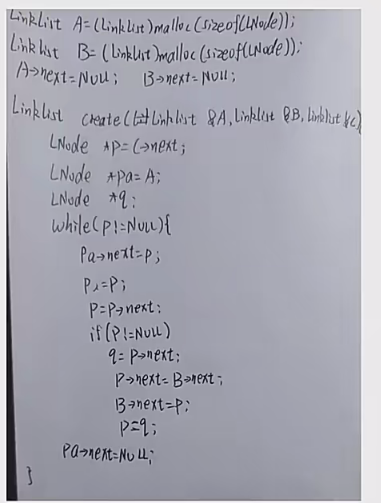 LinkList A=(LinkList)malloc(sizeof(LNode));
LinkList B=(LinkList)malloc(sizeof(LNode));
A->next=NULL; B->next=NULL;
LinkList create(LinkList &A,LinkList &B,LinkList &C)
LNode *p=C->next;
LNode *pa=A;
LNode *q;
while(p!=NULL){
pa->next=p;
p=p->next;
if(p!=NULL)
q=p->next;
p->next=B->next;
B->next=p;
p=q;
pa->next=NULL;
}